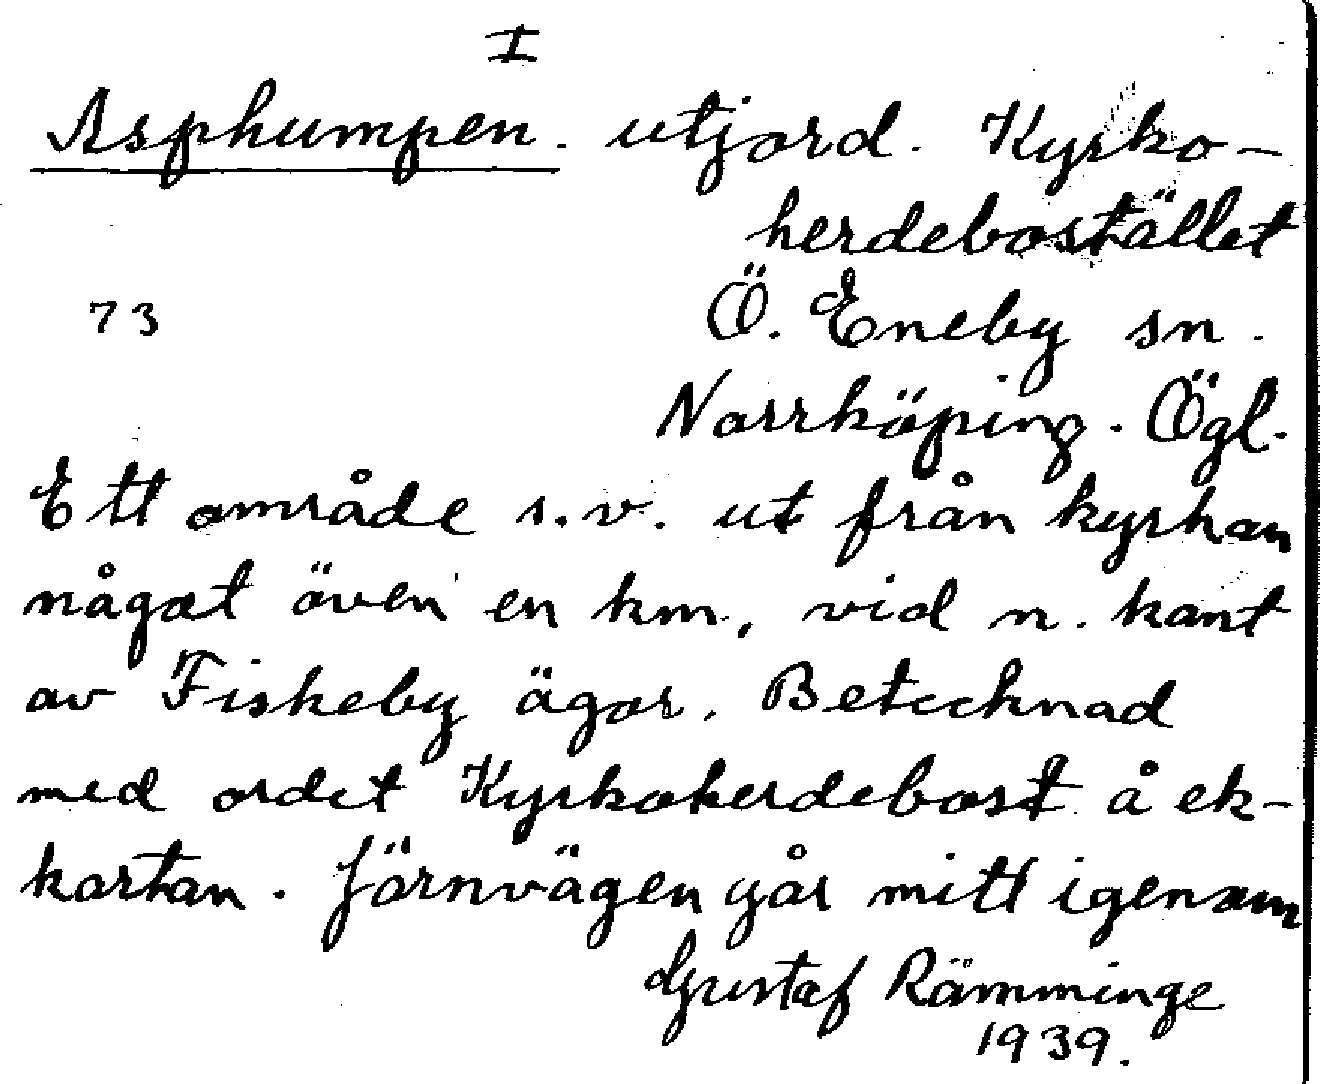 I
Asphumpen. utjord. Kyrko-
herdebostället
73 Ö. Eneby sn.
Norrköping. Ögl.
Ett område s.v. ut från kyrkan
något även en km, vid n. kant
av Fiskeby ägor. Betecknad
med ordet Kyrkoherdebost å ek-
kartan. Järnvägen går mitt igenom
Gustaf Rämminge
1939.